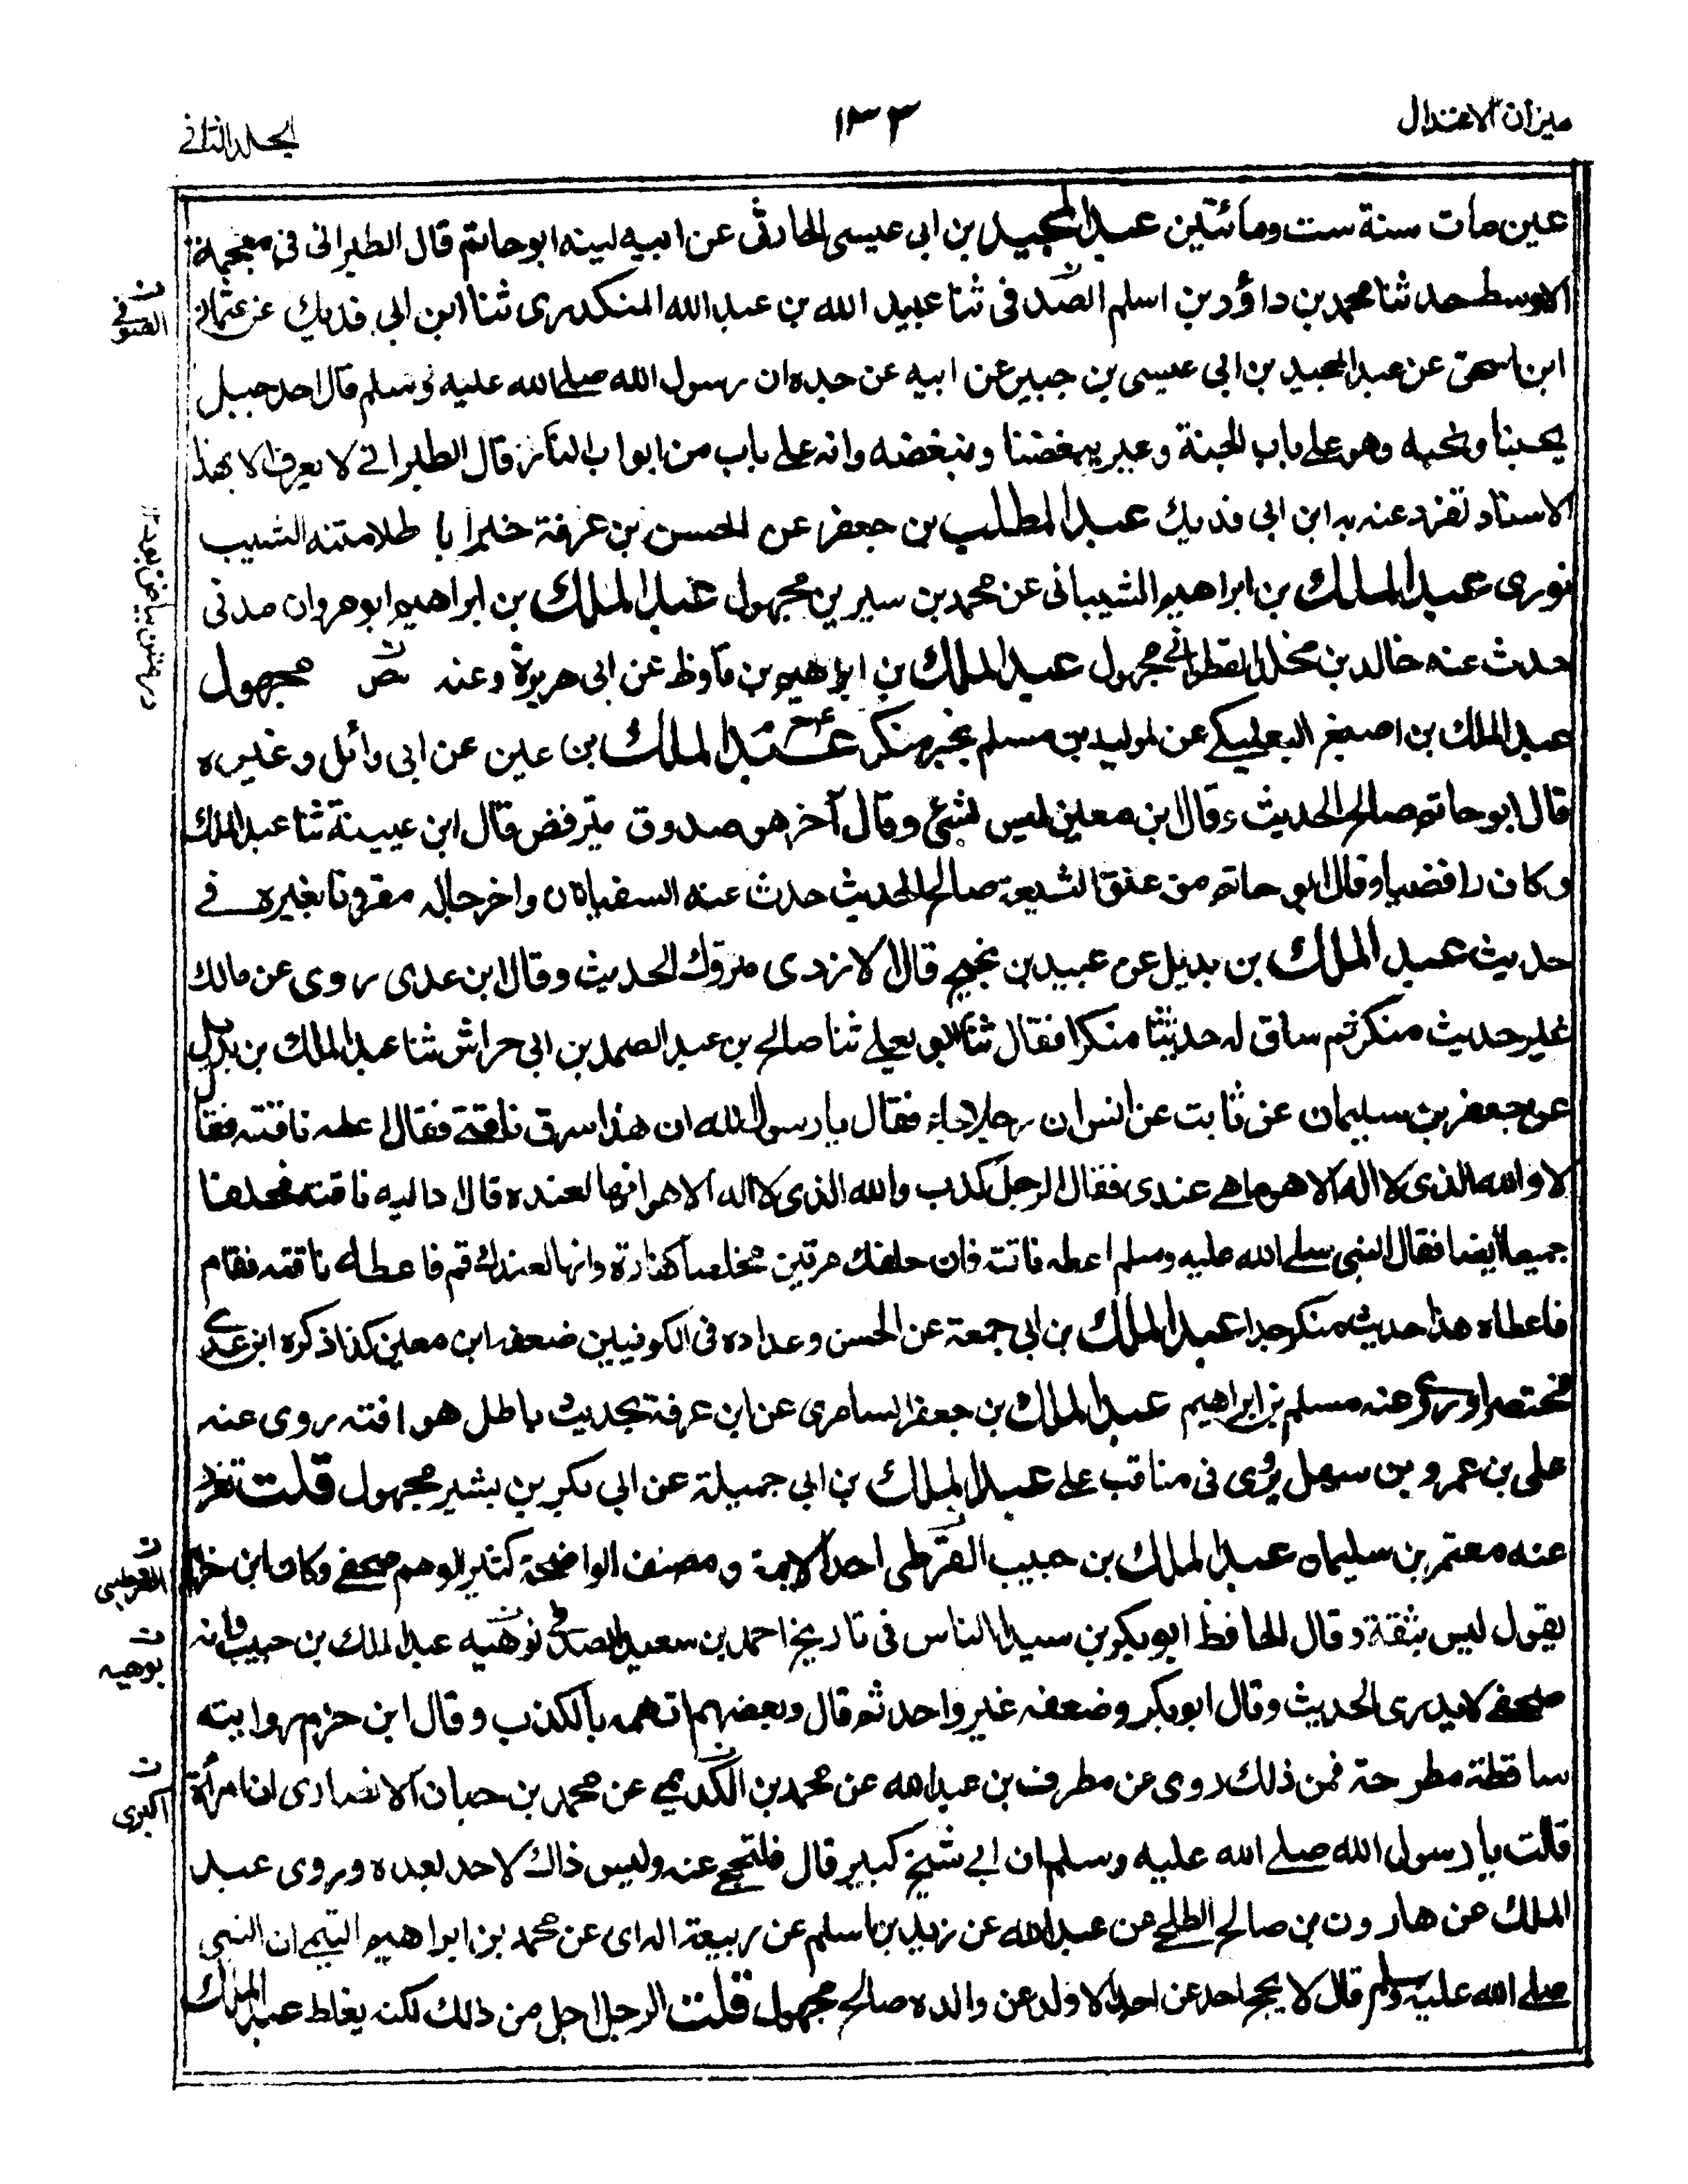 ميزان الاعتدال
١٣٣
الجلد الثاني
عين مات سنة ست ومائتين عبد المجيد بن ابى عيسى الحارثى عن ابيه لينه ابو حاتم قال الطبرانى فى معجمه
الاوسط حدثنا محمد بن داؤد بن اسلم الصدفى ثنا عبيد الله بن عبد الله المنكدرى ثنا ابن ابى فديك عن عثمان
ابن اسحق عن عبد المجيد بن ابى عيسى بن جبير عن ابيه عن جده ان رسول الله صلے الله عليه وسلم قال احد جبل
يحبنا ونحبه وهو على باب الجنة وعير يبغضنا ونبغضه وانه على باب من ابواب النار قال الطبرانے لا يعرف الا بهذا
الاسناد تفرد عنه به ابن ابى فديك عبد المطلب بن جعفر عن الحسن بن عرفة خبرا باطلا متنه الشيب
نورى عبد الملك بن ابراهيم الشيبانى عن محمد بن سيرين مجهول عبد الملك بن ابراهيم ابو مروان مدنى
حدث عنه خالد بن مخلد القطوانے مجهول عبد الملك بن ابراهيم بن قارظ عن ابى هريرة وعنه مجهول
عبد الملك بن اصبغ البعلبكے عن الوليد بن مسلم بخبر منكر عبد الملك بن اعين عن ابى وائل وغيره
قال ابو حاتم صالح الحديث وقال ابن معين ليس بشئ وقال آخر هو صدوق يترفض قال ابن عيينة ثنا عبد الملك
وكان رافضيا وقال ابو حاتم من عتق الشيعة صالح الحديث حدث عنه السفيانان واخرجا له مقرونا بغيره فے
حديث عبد الملك بن بديل عن عبيد بن نجيح قال الازدى متروك الحديث وقال ابن عدى روى عن مالك
غير حديث منكر ثم ساق له حديثا منكرا فقال ثنا ابو يعلے ثنا صالح بن عبد الصمد بن ابى حراش ثنا عبد الملك بن بديل
عن جعفر بن سليمان عن ثابت عن انس ان رجلا جاء فقال يا رسول الله ان هذا سرق ناقتے فقال اعطه ناقته فقال
لا والله الذى لا اله الا هو ما هے عندى فقال الرجل كذب والله الذى لا اله الا هو انها لعنده قال اليه ناقته فحلفا
جميعا ايضا فقال النبى صلے الله عليه وسلم اعطه ناقته فان حلفك مرتين كفارة وانها لعندك قم فاعطه ناقته فقام
فاعطاه هذا حديث منكر جدا عبد الملك بن ابى جمعة عن الحسن وعداده فى الكوفيين ضعفه ابن معين كذا ذكره ابن عدے
مختصرا وروى عنه مسلم بن ابراهيم عبد الملك بن جعفر السامرى عن ابن عرفة بحديث باطل هو افته روى عنه
على بن عمرو بن سهل يروى فى مناقب على عبد الملك بن ابى جميلة عن ابى بكر بن بشير مجهول قلت تفرد
عنه معتمر بن سليمان عبد الملك بن حبيب القرطى احد الائمة ومصنف الواضحة كثير الوهم صحفے وكان ابن حزم
يقول ليس بثقة وقال الحافظ ابو بكر بن سيد الناس فى تاريخ احمد بن سعيد الصدفى توهية عبد الملك بن حبيب وانه
صحفے لا يدرى الحديث وقال ابو بكر وضعفه غير واحد ثم قال وبعضهم اتهمه بالكذب وقال ابن حزم روايته
ساقطة مطرحة فمن ذلك روى عن مطرف بن عبد الله عن محمد بن الكديمے عن محمد بن حبان الانصارى ان امرأة
قالت يا رسول الله صلے الله عليه وسلم ان ابے شيخ كبير قال فلتحجے عنه وليس ذاك لاحد بعده وروى عبد
الملك عن هارون بن صالح الطلحے عن عبد الله عن زيد بن اسلم عن ربيعة الراى عن محمد بن ابراهيم التيمے ان النبى
صلے الله عليه وسلم قال لا يحج احد عن احد الا ولد عن والده صالح مجهول قلت الرجل اجل من ذلك لكنه يغلط عبد الملك
ن
الصوفے
ن
القرطبى
ن
توهيه
ن
اكبرى